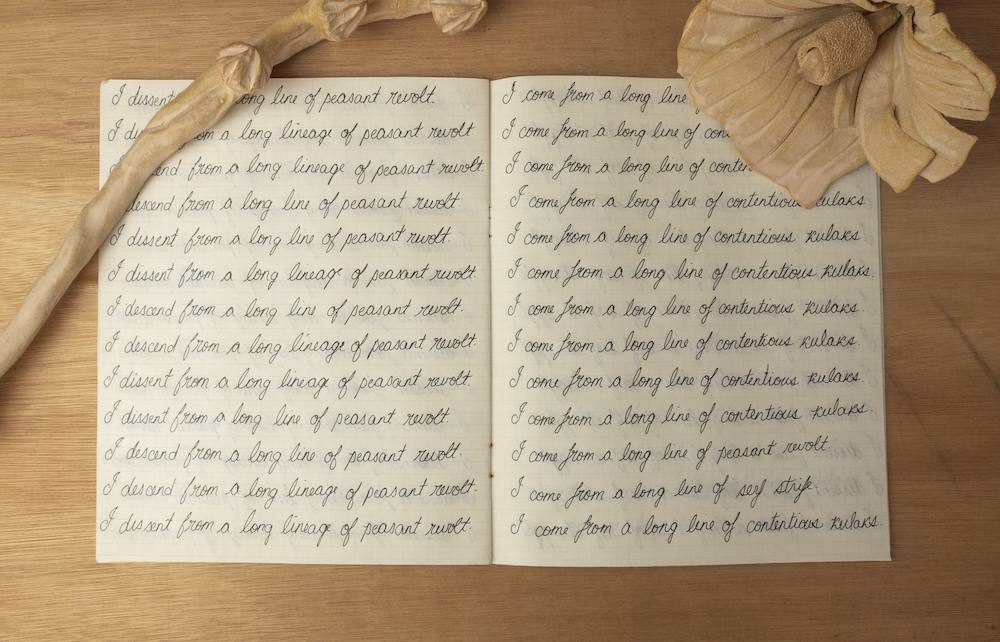 I dissent long line of peasant revolt.
I from a long lineage of peasant revolt
from a long lineage of peasant revolt.
descend from a long line of peasant revolt
I dissent from a long line of peasant revolt.
I dissent from a long lineage of peasant revolt.
I descend from a long line of peasant revolt.
I descend from a long lineage of peasant revolt.
I dissent from a long lineage of peasant revolt.
I dissent from a long line of peasant revolt.
I descend from a long line of peasant revolt.
I descend from a long lineage of peasant revolt.
I dissent from a long lineage of peasant revolt.
I come from a long line
I come from a long line of
I come from a long line of
I come from a long line of contentious kulaks.
I come from a long line of contentious kulaks
I come from a long line of contentious kulaks.
I come from a long line of contentious kulaks.
I come from a long line of contentious kulaks.
I come from a long line of contentious kulaks.
I come from a long line of contentious kulaks.
I come from a long line of peasant revolt
I come from a long line of serf strife.
I come from a long line of contentious kulaks.